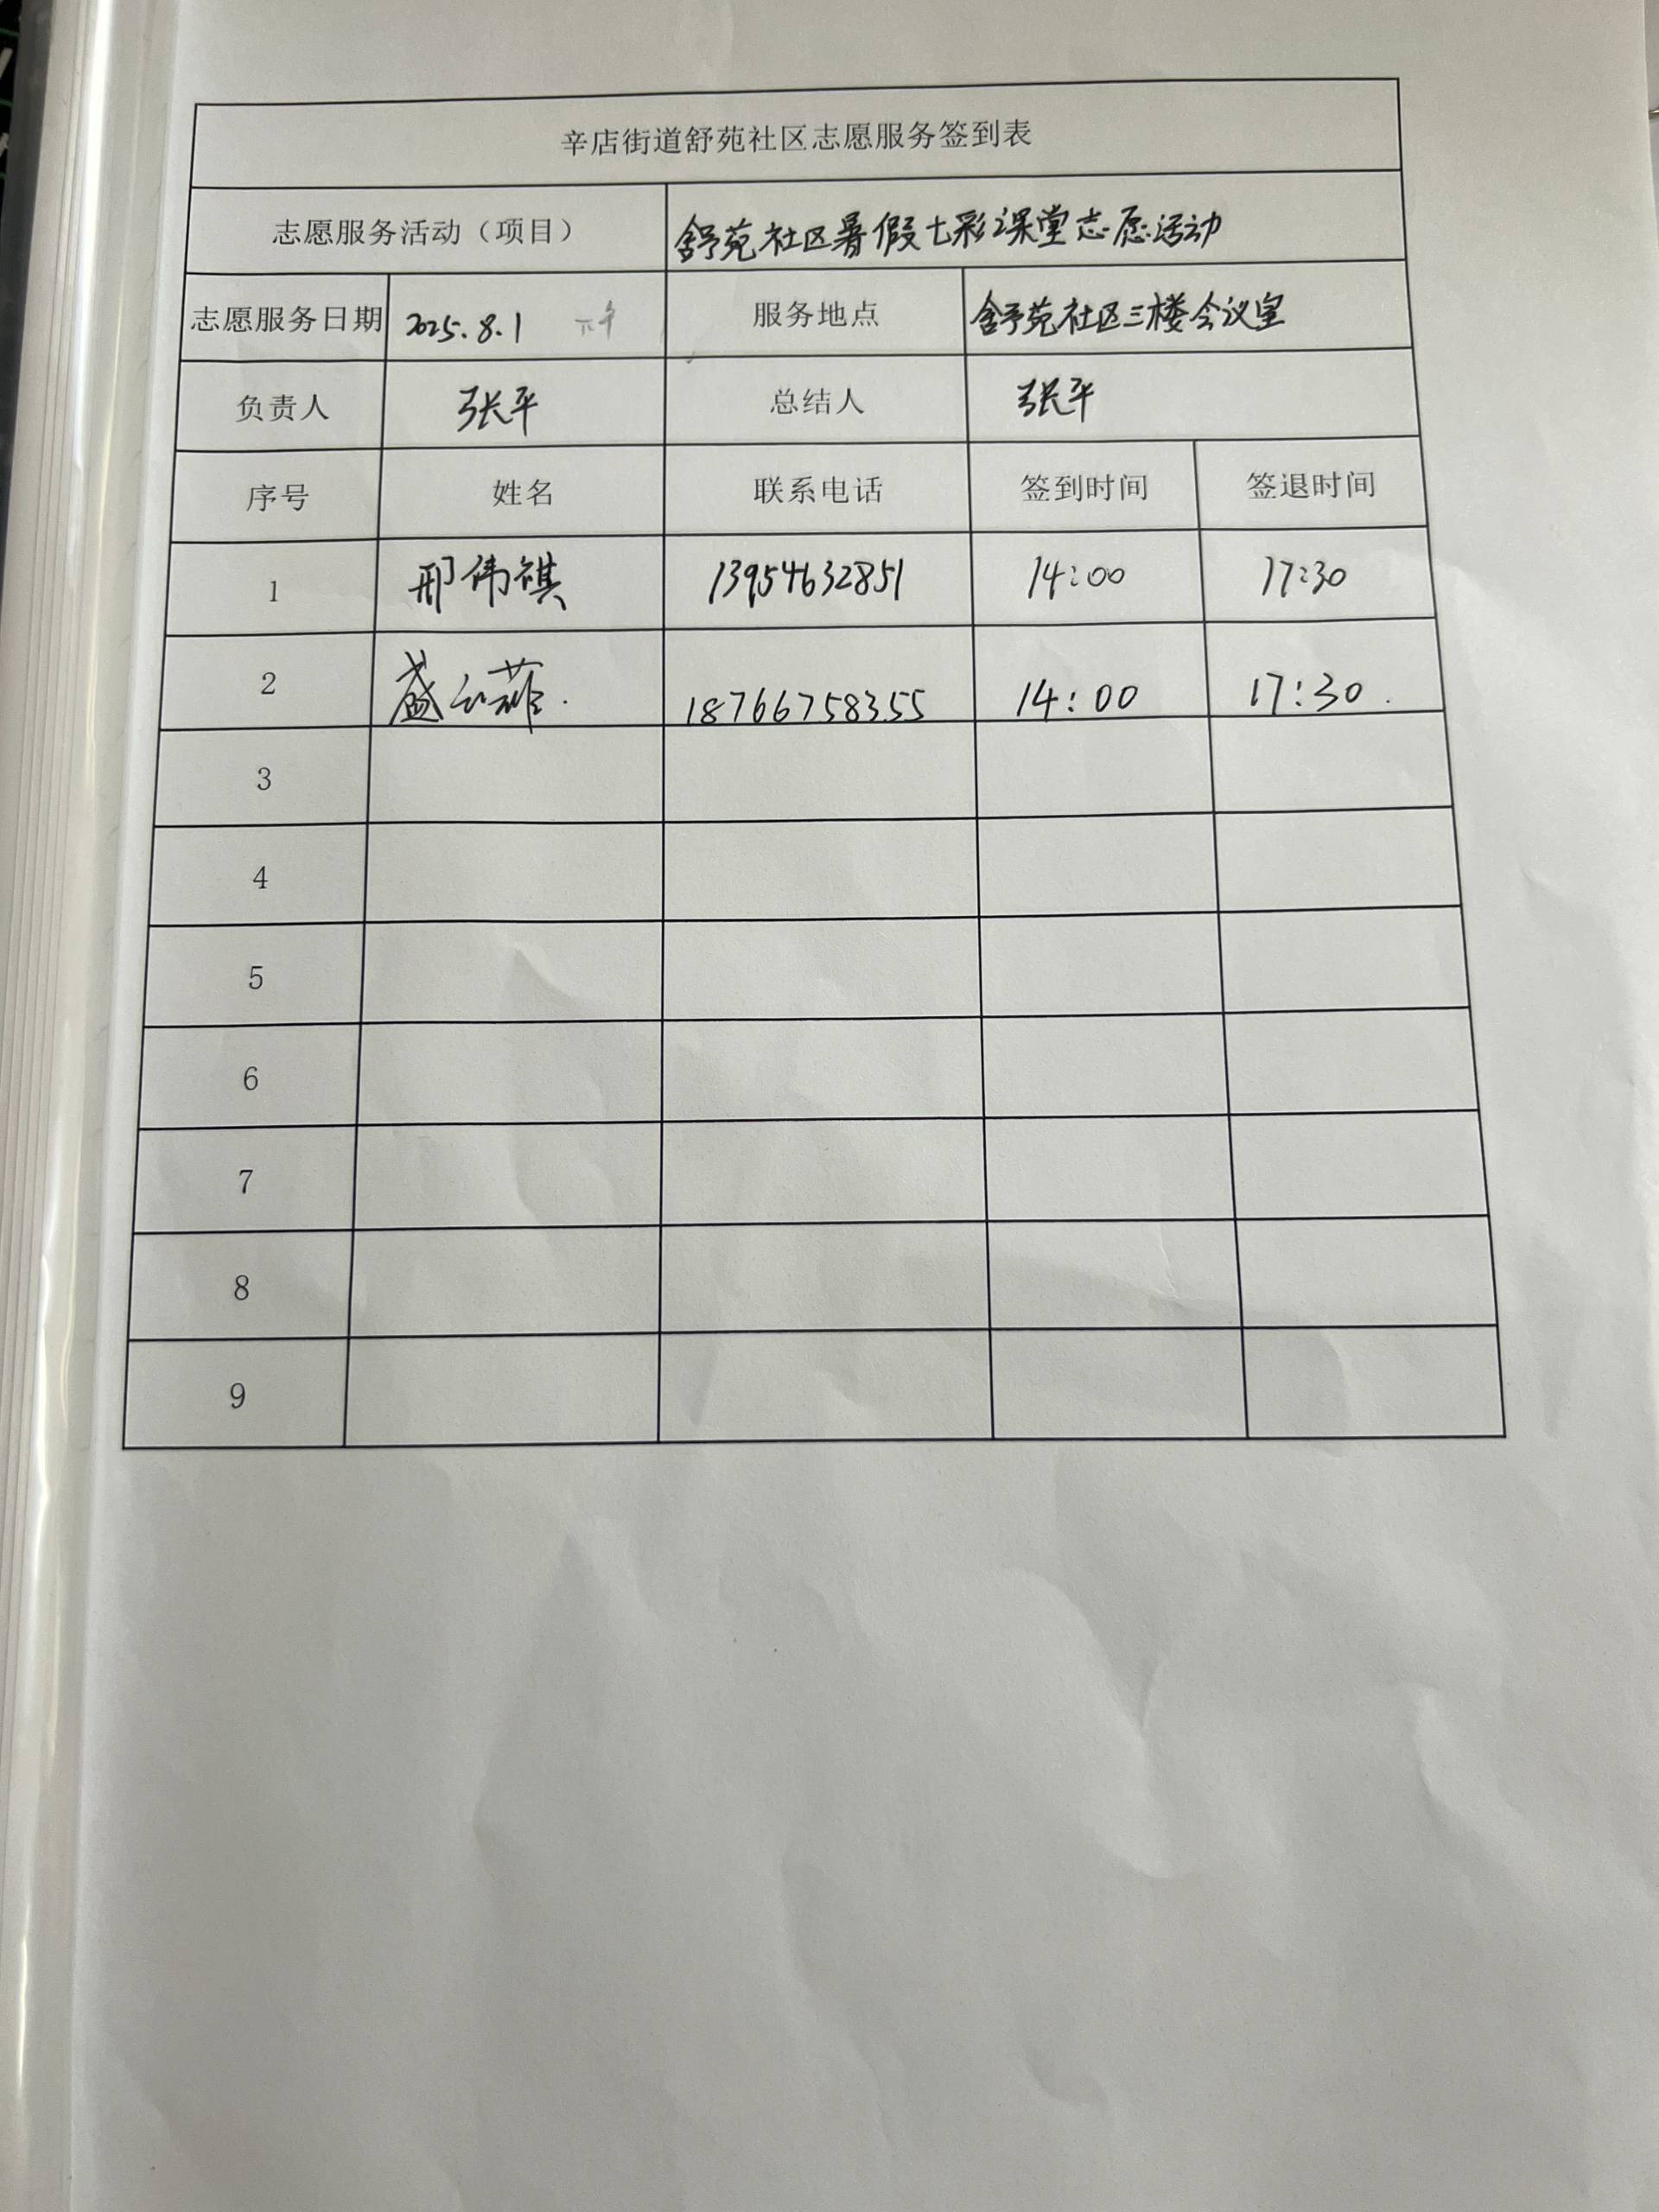 辛店街道舒苑社区志愿服务签到表
志愿服务活动（项目） 舒苑社区暑假七彩课堂志愿活动
志愿服务日期 2025.8.1 下午 服务地点 舒苑社区三楼会议室
负责人 张平 总结人 张平
序号 姓名 联系电话 签到时间 签退时间
1 邢伟祺 13954632851 14:00 17:30
2 盛 菲. 18766758355 14:00 17:30.
3
4
5
6
7
8
9